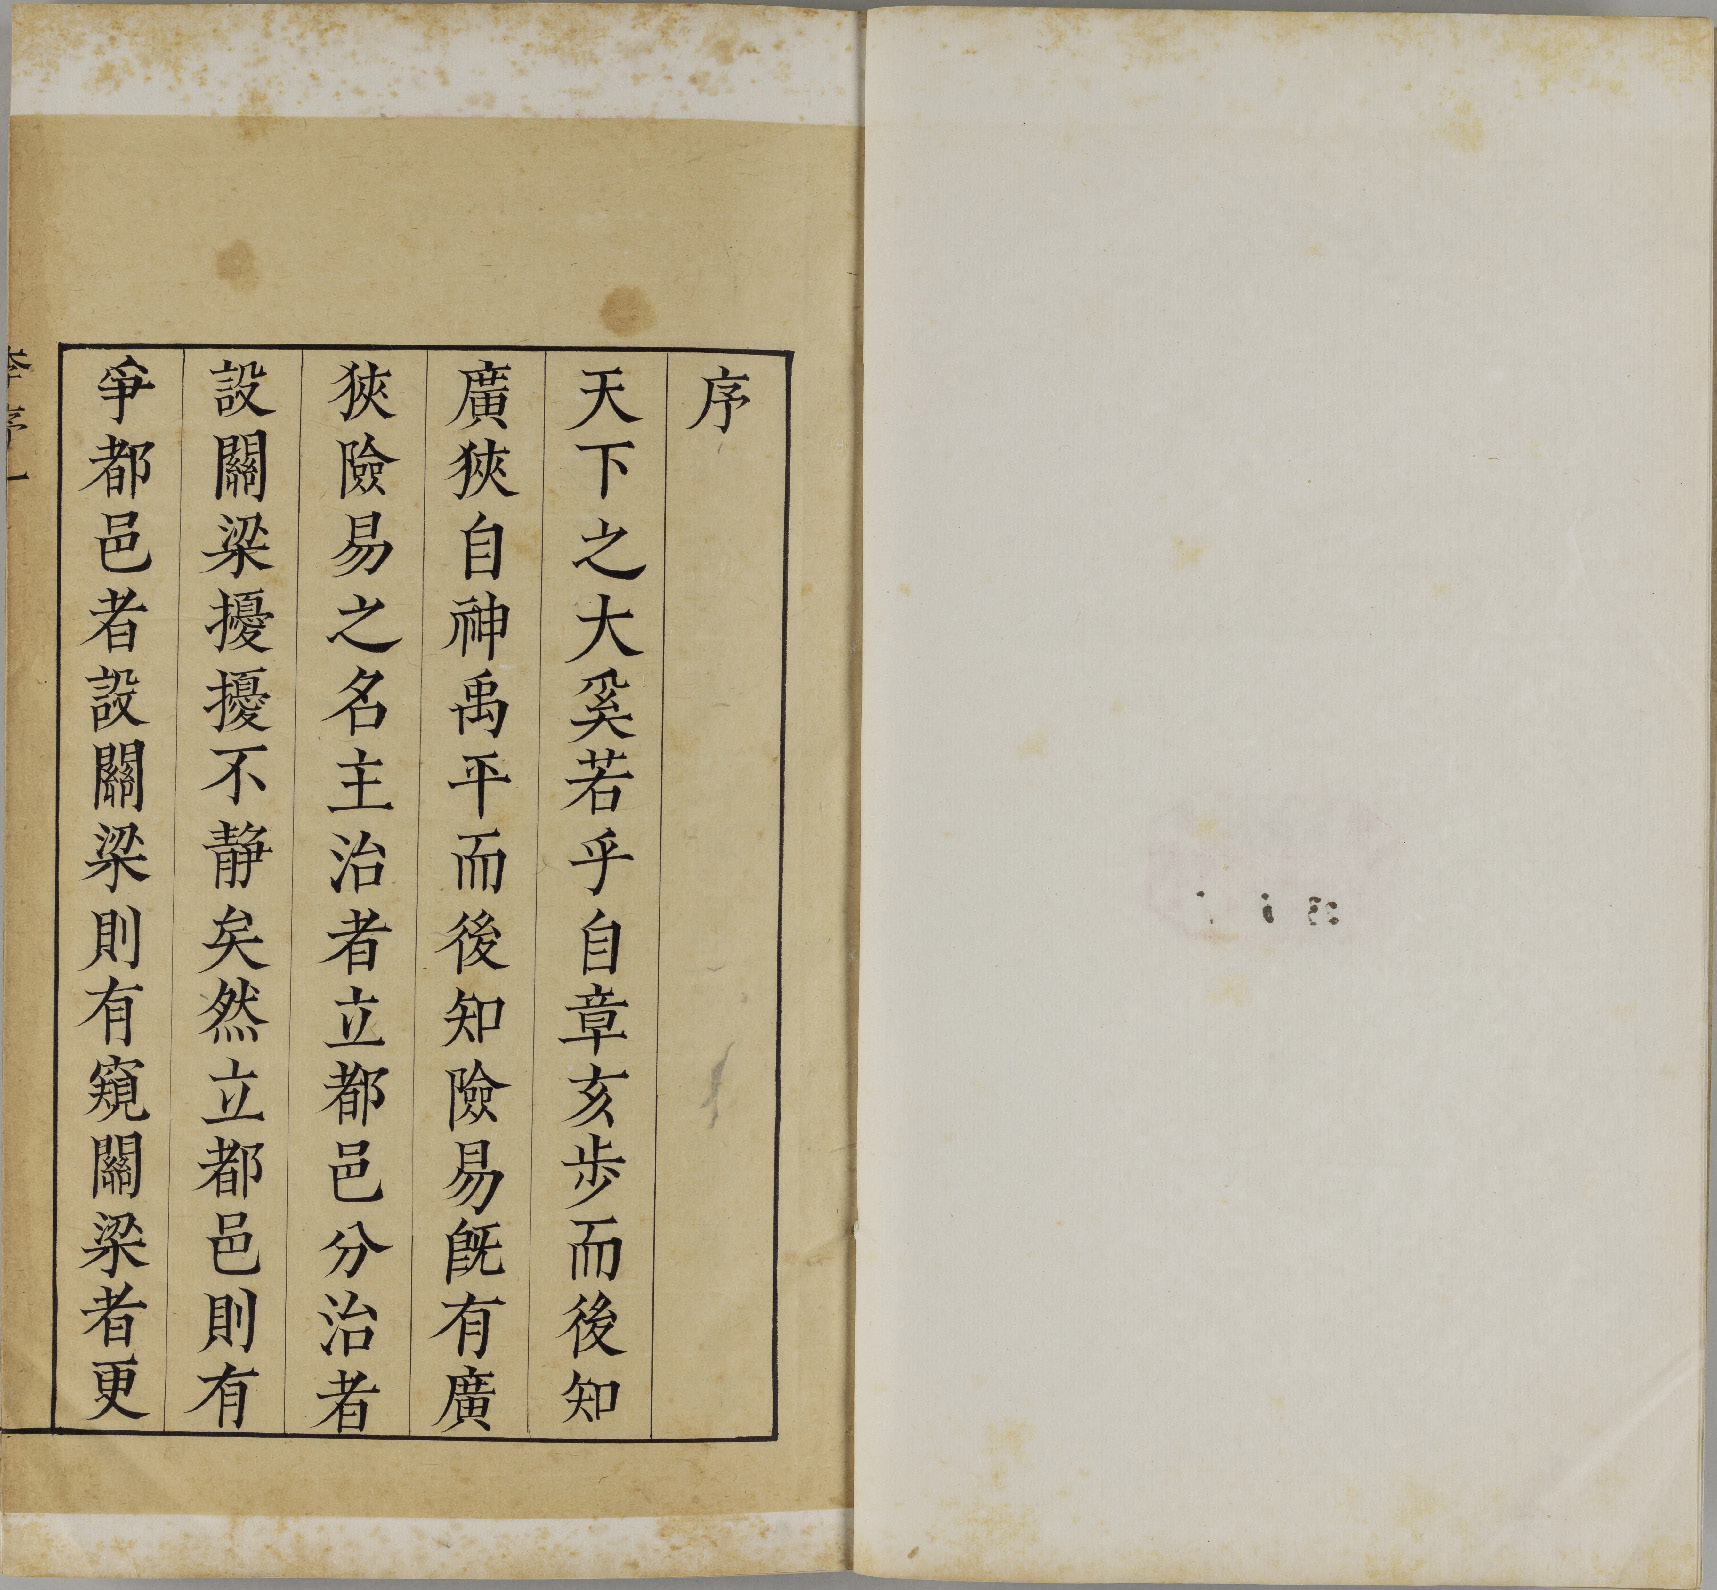 序
天下之大奚若乎自章亥步而後知
廣狹自神禹平而後知險易旣有廣
狹險易之名主治者立都邑分治者
設關梁擾擾不靜矣然立都邑則有
爭都邑者設關梁則有窺關梁者更
序一